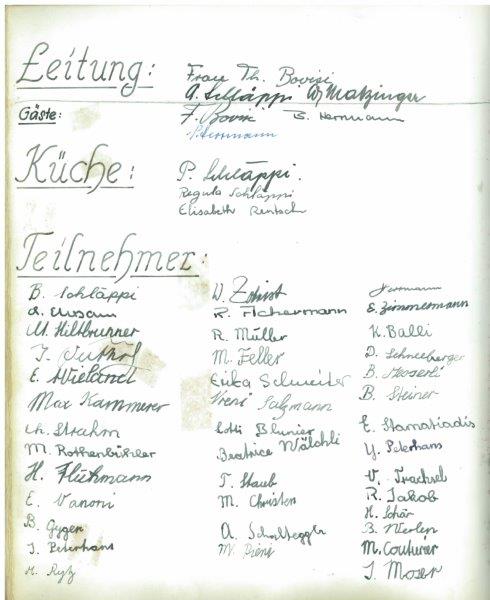 Leitung:
Frau Th. Bovisi
A. Schläppi W. Matzinger
Gäste:
F. Bovisi B. Herrmann
P. Herrmann
Küche:
P. Schläppi.
Regula Schläppi
Elisabeth Rentsch
Teilnehmer:
B. Schläppi
M. Hiltbrunner
E. Wieland
Max Kammerer
Ch. Strahm
M. Rothenbühler
H. Flühmann
E. Vanoni
B. Gygax
J. Peterhans
M. Rytz
R. Achermann
R. Müller
M. Feller
Erika Schmeiter
Vreni Salzmann
Lotti Blunier
Beatrice Wälchli
T. Staub
M. Christen
A. Schaltegger
Herrmann
E. Zimmermann
K. Balli
D. Schneeberger
B. Messerli
B. Steiner
E. Stamatiadis
Y. Peterhans
V. Trachsel
R. Jakob
H. Schär
B. Werlen
M. Couturier
J. Moser